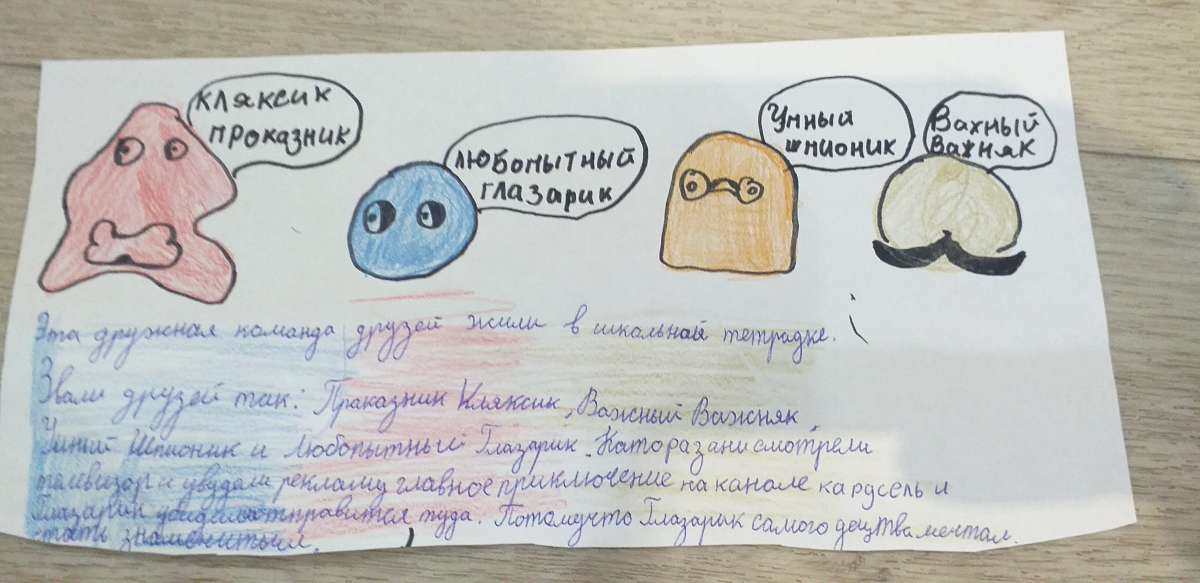 кляксик
проказник
любопытный
глазарик
Умный
шпионик
Вахный
Важняк
Эта дружная команда друзей жили в школьной тетрадке.
Звали друзей так: Праказник Кляксик, Важный Важняк,
Умний Шпионик и Любопытный Глазарик. Каторазани смотрели
телевизор и увидели рекламу главное приключение на канале карусель и
Глазарик отправится туда. Потомучто Глазарык самого децтва мечтал
стать знаменитым.